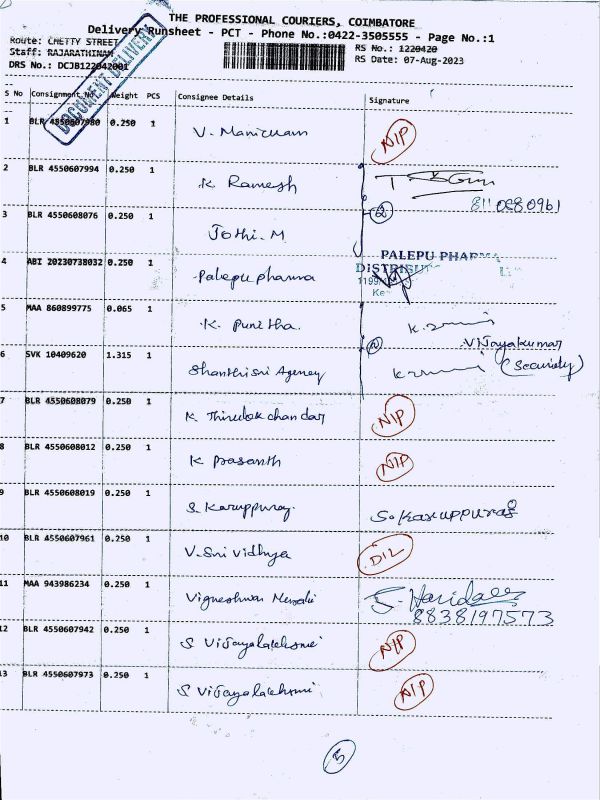 THE PROFESSIONAL COURIERS, COIMBATORE
Delivery Runsheet - PCT - Phone No.:0422-3505555 - Page No.:1
Route: CHETTY STREET
Staff: RAJARATHINAM
DRS No.: DCJB122042001
RS No.: 1220420
RS Date: 07-Aug-2023
DOCUMENT DELIVERY
S No Consignment No Weight PCS Consignee Details Signature
1 BLR 4550607980 0.250 1 V. Manickam N/P
2 BLR 4550607994 0.250 1 K. Ramesh
8110280961
3 BLR 4550608076 0.250 1 Jothi. M 2
4 ABI 20230738032 0.250 1 Palepu pharma PALEPU PHARMA
DISTRIBUT
5 MAA 860899775 0.065 1 K. Punitha.
2 Vijayakumar
6 SVK 10409620 1.315 1 Shanthi Sri Agency (Security)
7 BLR 4550608079 0.250 1 K Thirulok chandar N/P
8 BLR 4550608012 0.250 1 K Prasanth N/P
9 BLR 4550608019 0.250 1 S. Karuppuraj. S. Karuppuraj
10 BLR 4550607961 0.250 1 V. Sri Vidhya D/L
11 MAA 943986234 0.250 1 Vigneshwar S. Haridass
8838197573
12 BLR 4550607942 0.250 1 S Vijayalakshmi N/P
13 BLR 4550607973 0.250 1 S Vijayalakshmi N/P